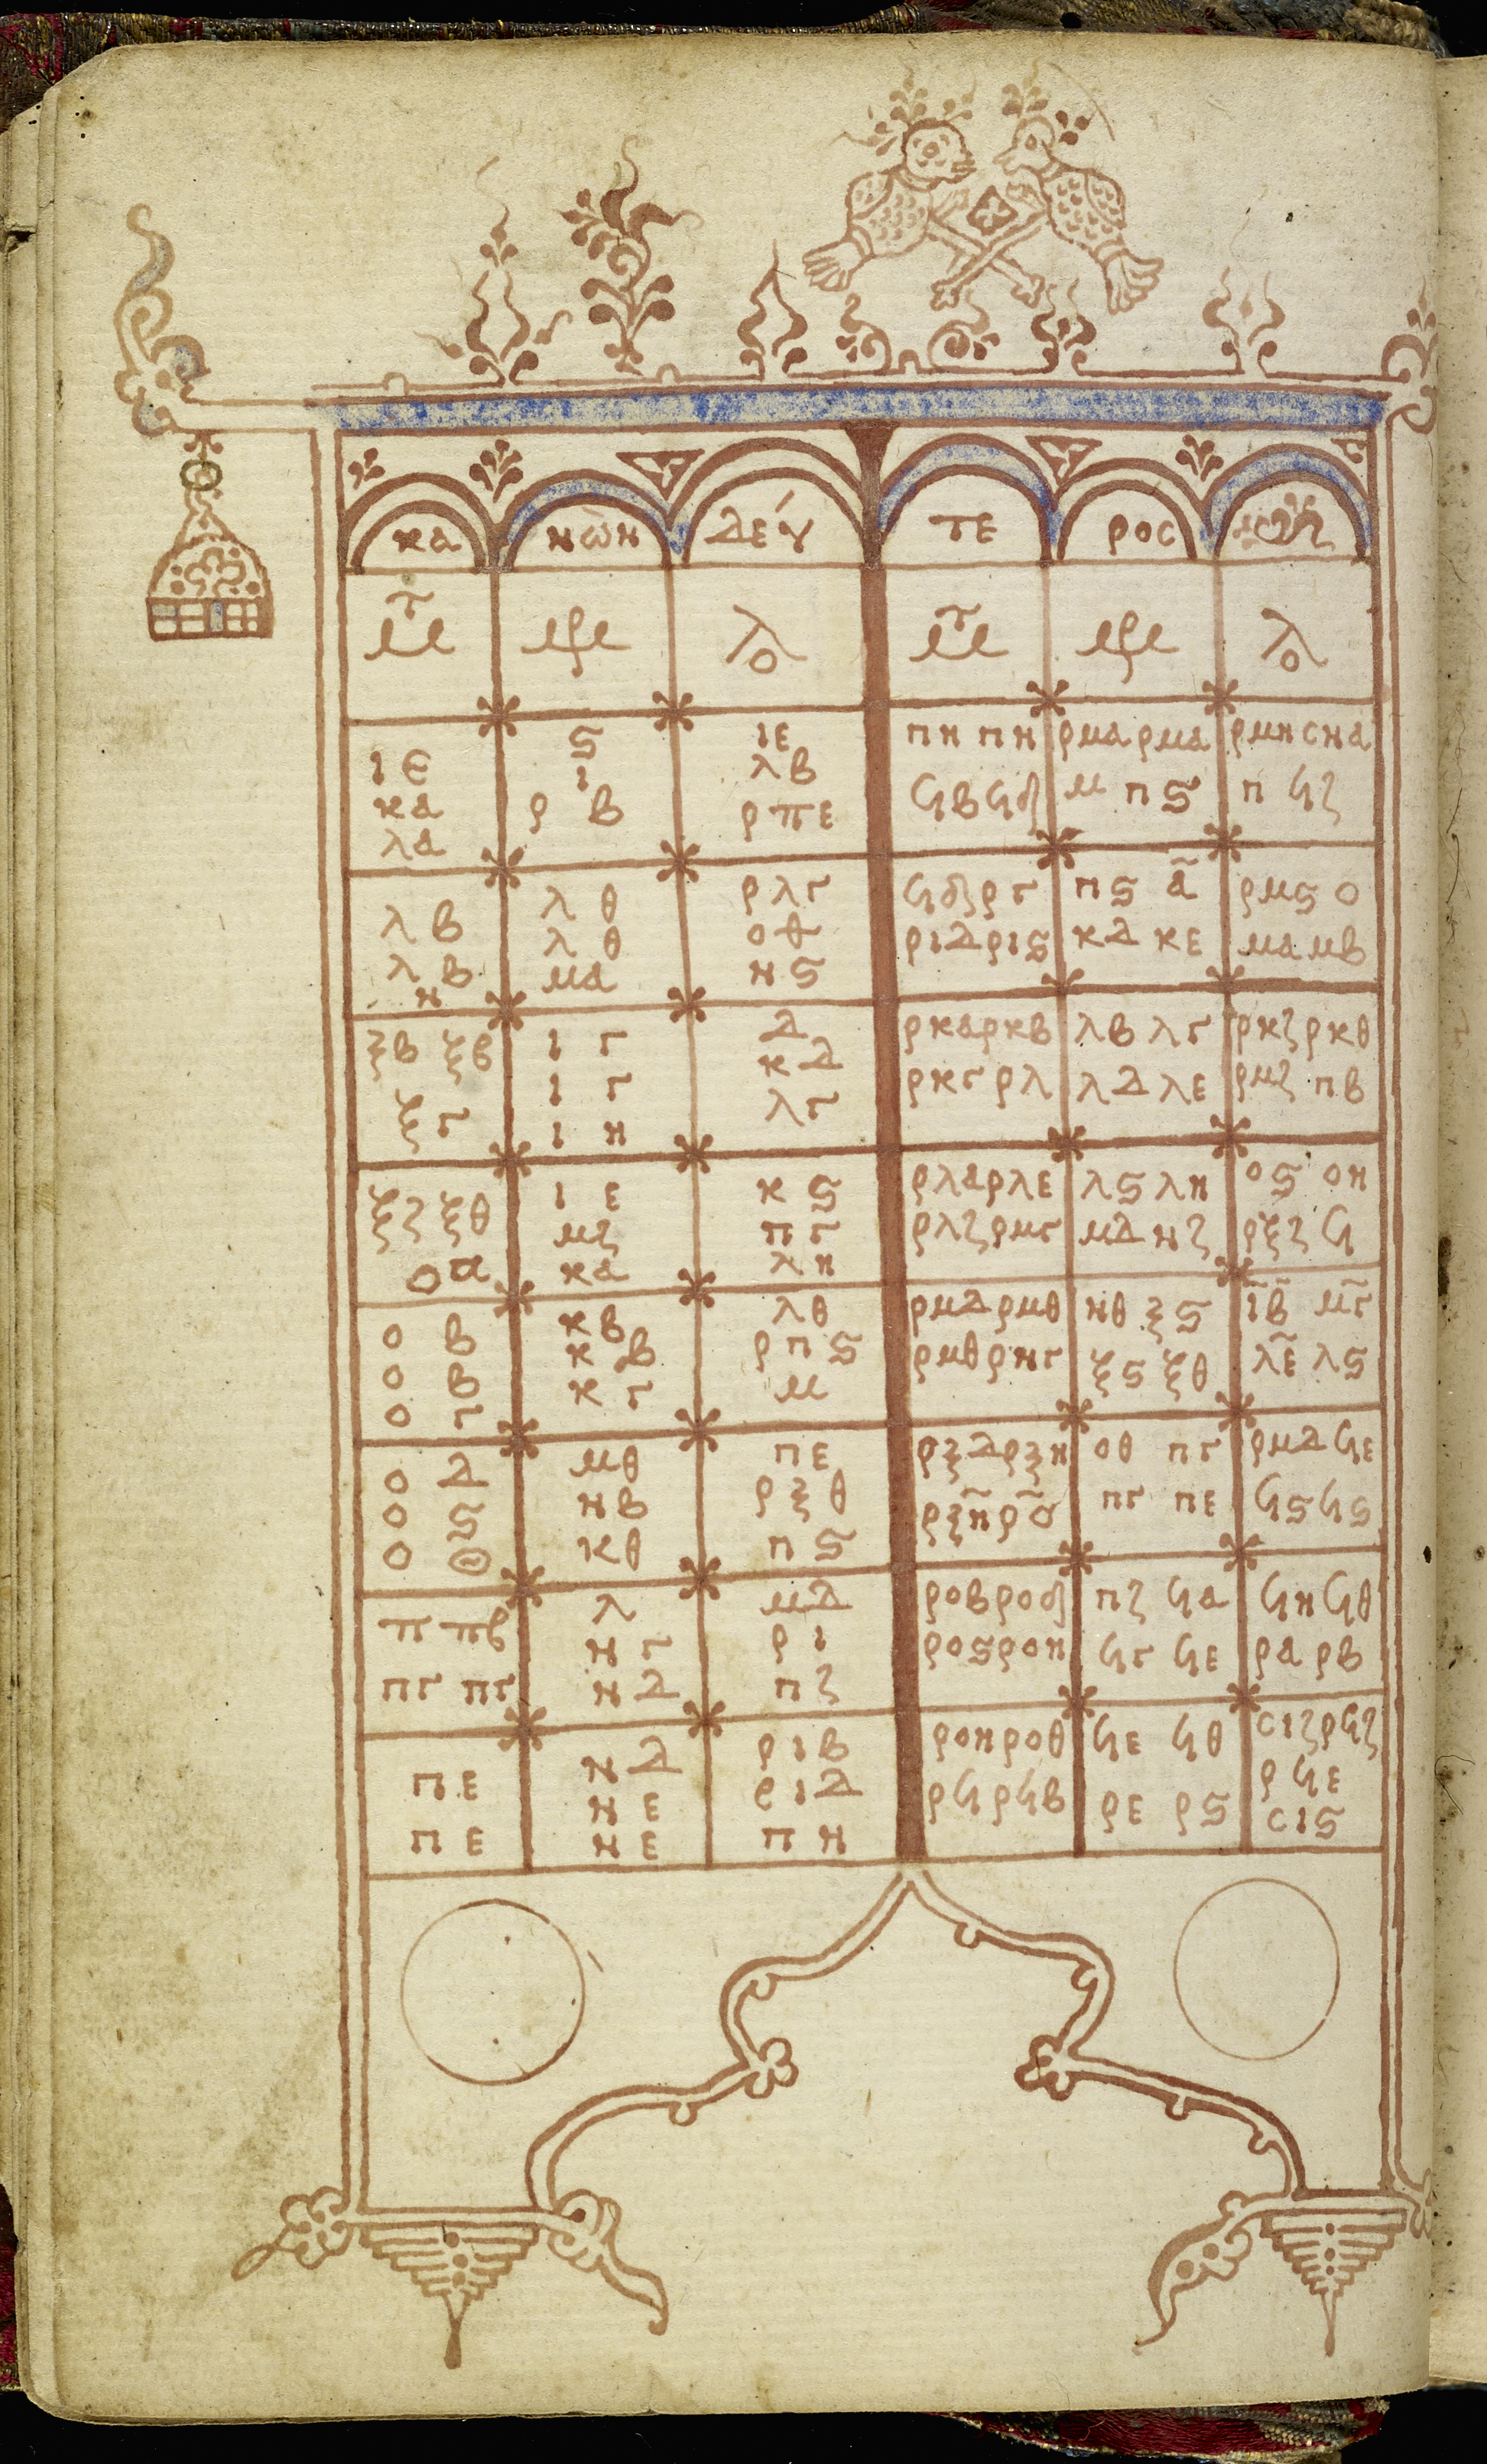 κα νων δεύ τε ρος
ιε
κα
λα
ϛ
ι
ρ β
ιε
λβ
ρπε
πη πη
ϟβ ϟδ
ρμα ρμα
μ πϛ
ρμη σηα
π ϟζ
λβ
λβ
η
λθ
λθ
μα
ρλγ
οθ
νϛ
ϟδ ργ
ριδ ριϛ
πϛ α̃
κδ κε
ρμϛ ο
μα μβ
ξβ ξβ
ξγ
ιγ
ιγ
ιη
δ
κδ
λγ
ρκα ρκβ
ρκγ ρλ
λβ λγ
λδ λε
ρκζ ρκθ
ρμζ πβ
ξζ ξθ
οα
ιε
μζ
κα
κϛ
πγ
λη
ρλα ρλε
ρλζ ρμγ
λϛ λη
μδ νζ
οϛ οη
ρξζ ϟ
οβ
οβ
ογ
κβ
κβ
κγ
λθ
ρπϛ
μ
ρμδ ρμθ
ρμθ ρνγ
νθ ξϛ
ξϛ ξθ
ιβ̃ μγ̃
λε̃ λϛ
οδ
οϛ
οθ
μθ
νβ
κθ
πε
ρξθ
πϛ
ρξδ ρξη
ρξη̃ ρõ
οθ πγ
πγ πε
ρμδ ϟε
ϟϛ ϟϛ
π πβ
πγ πγ
λ
νγ
νδ
μδ
ρι
πζ
ροβ ροδ
ροϛ ροη
πζ ϟα
ϟγ ϟε
ϟη ϟθ
ρα ρβ
πε
πε
νδ
νε
νε
ριβ
ριδ
πη
ροη ροθ
ρϟ ρϟβ
ϟε ϟθ
ρε ρϛ
σιζ ρϟζ
ρϟε
σιϛ